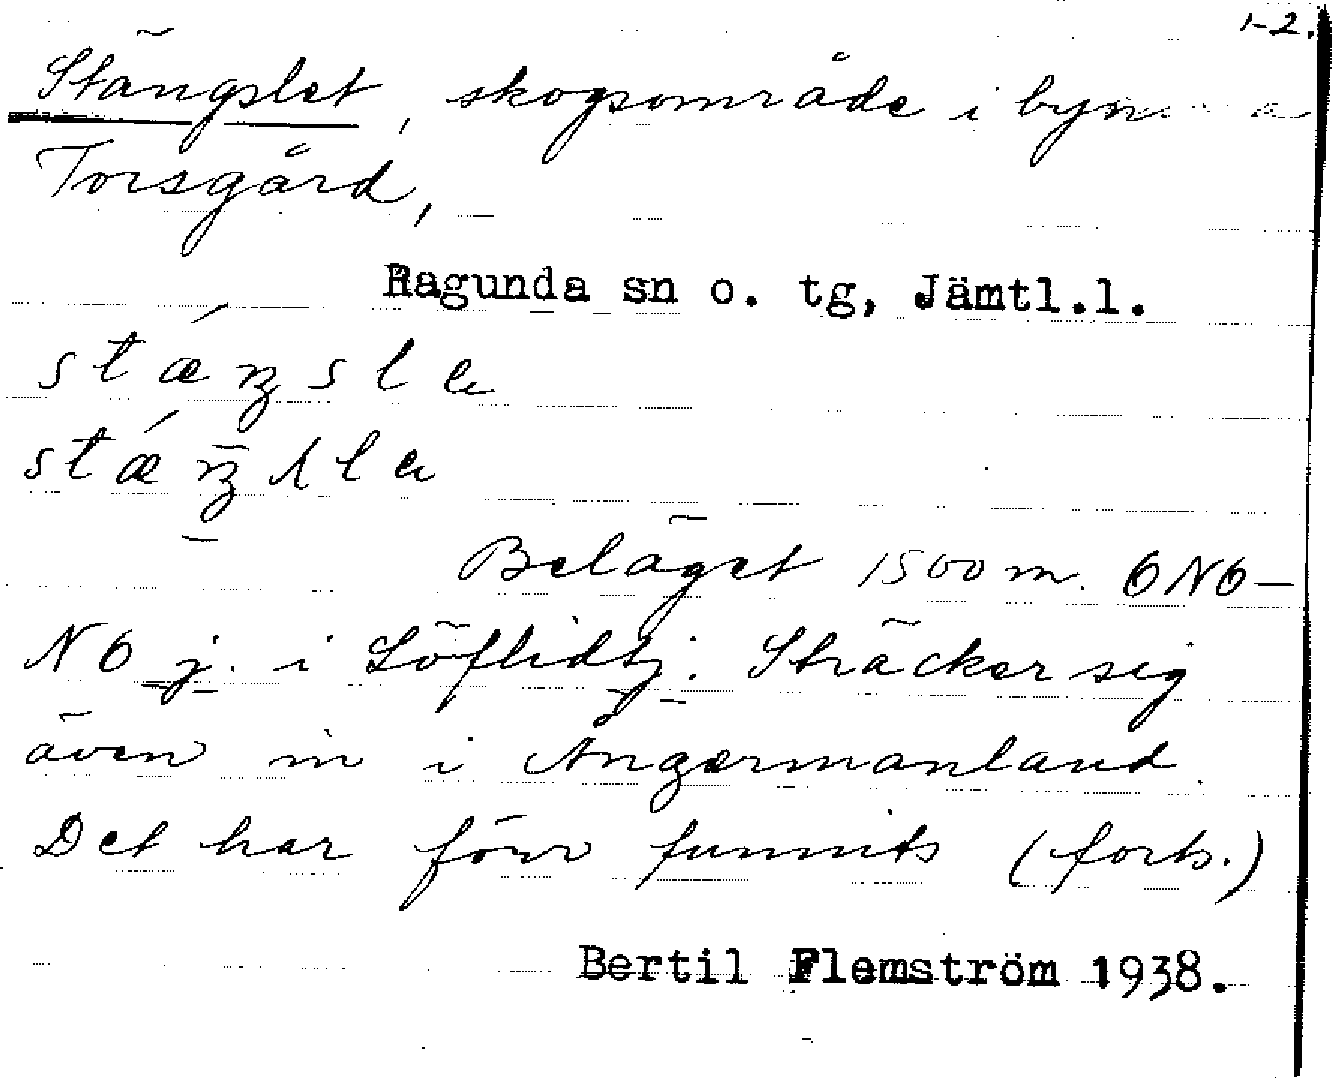 1-2.
Stängslet, skogsområde i byn
Torsgård,
Ragunda sn o. tg, Jämtl.l.
Beläget 1500 m. ONO-
NO j. i Söflidtj. Sträcker sig
även in i Ångermanland.
Det har förr funnits (forts.)
Bertil Flemström 1938.